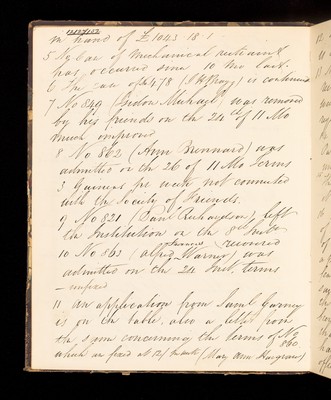 in hand of £1043 . 18 . 1
5 No Case of Mechanical restraint
has occurred since 10 mo last.
6 The case of No 478 is continued
7 No 849 (Gideon was removed
by his friends on the 24 of 11 Mo
much improved
8 No 862 (Ann Kennard) was
admitted on the 26 of 11 Mo Terms
3 Guineas pr week not connected
with the Society of Friends.
9 No 821 (Saml Richardson) left
the Institution on the 8th Inst
recovered
10 No 863 (Alfred Warner) was
admitted on the 24 Inst, terms
11 an application from Saml Gurney
is on the table, also a letter from
the same concerning the terms of No 860
which are fixed at 12/ week (Mary Ann Hargrave)